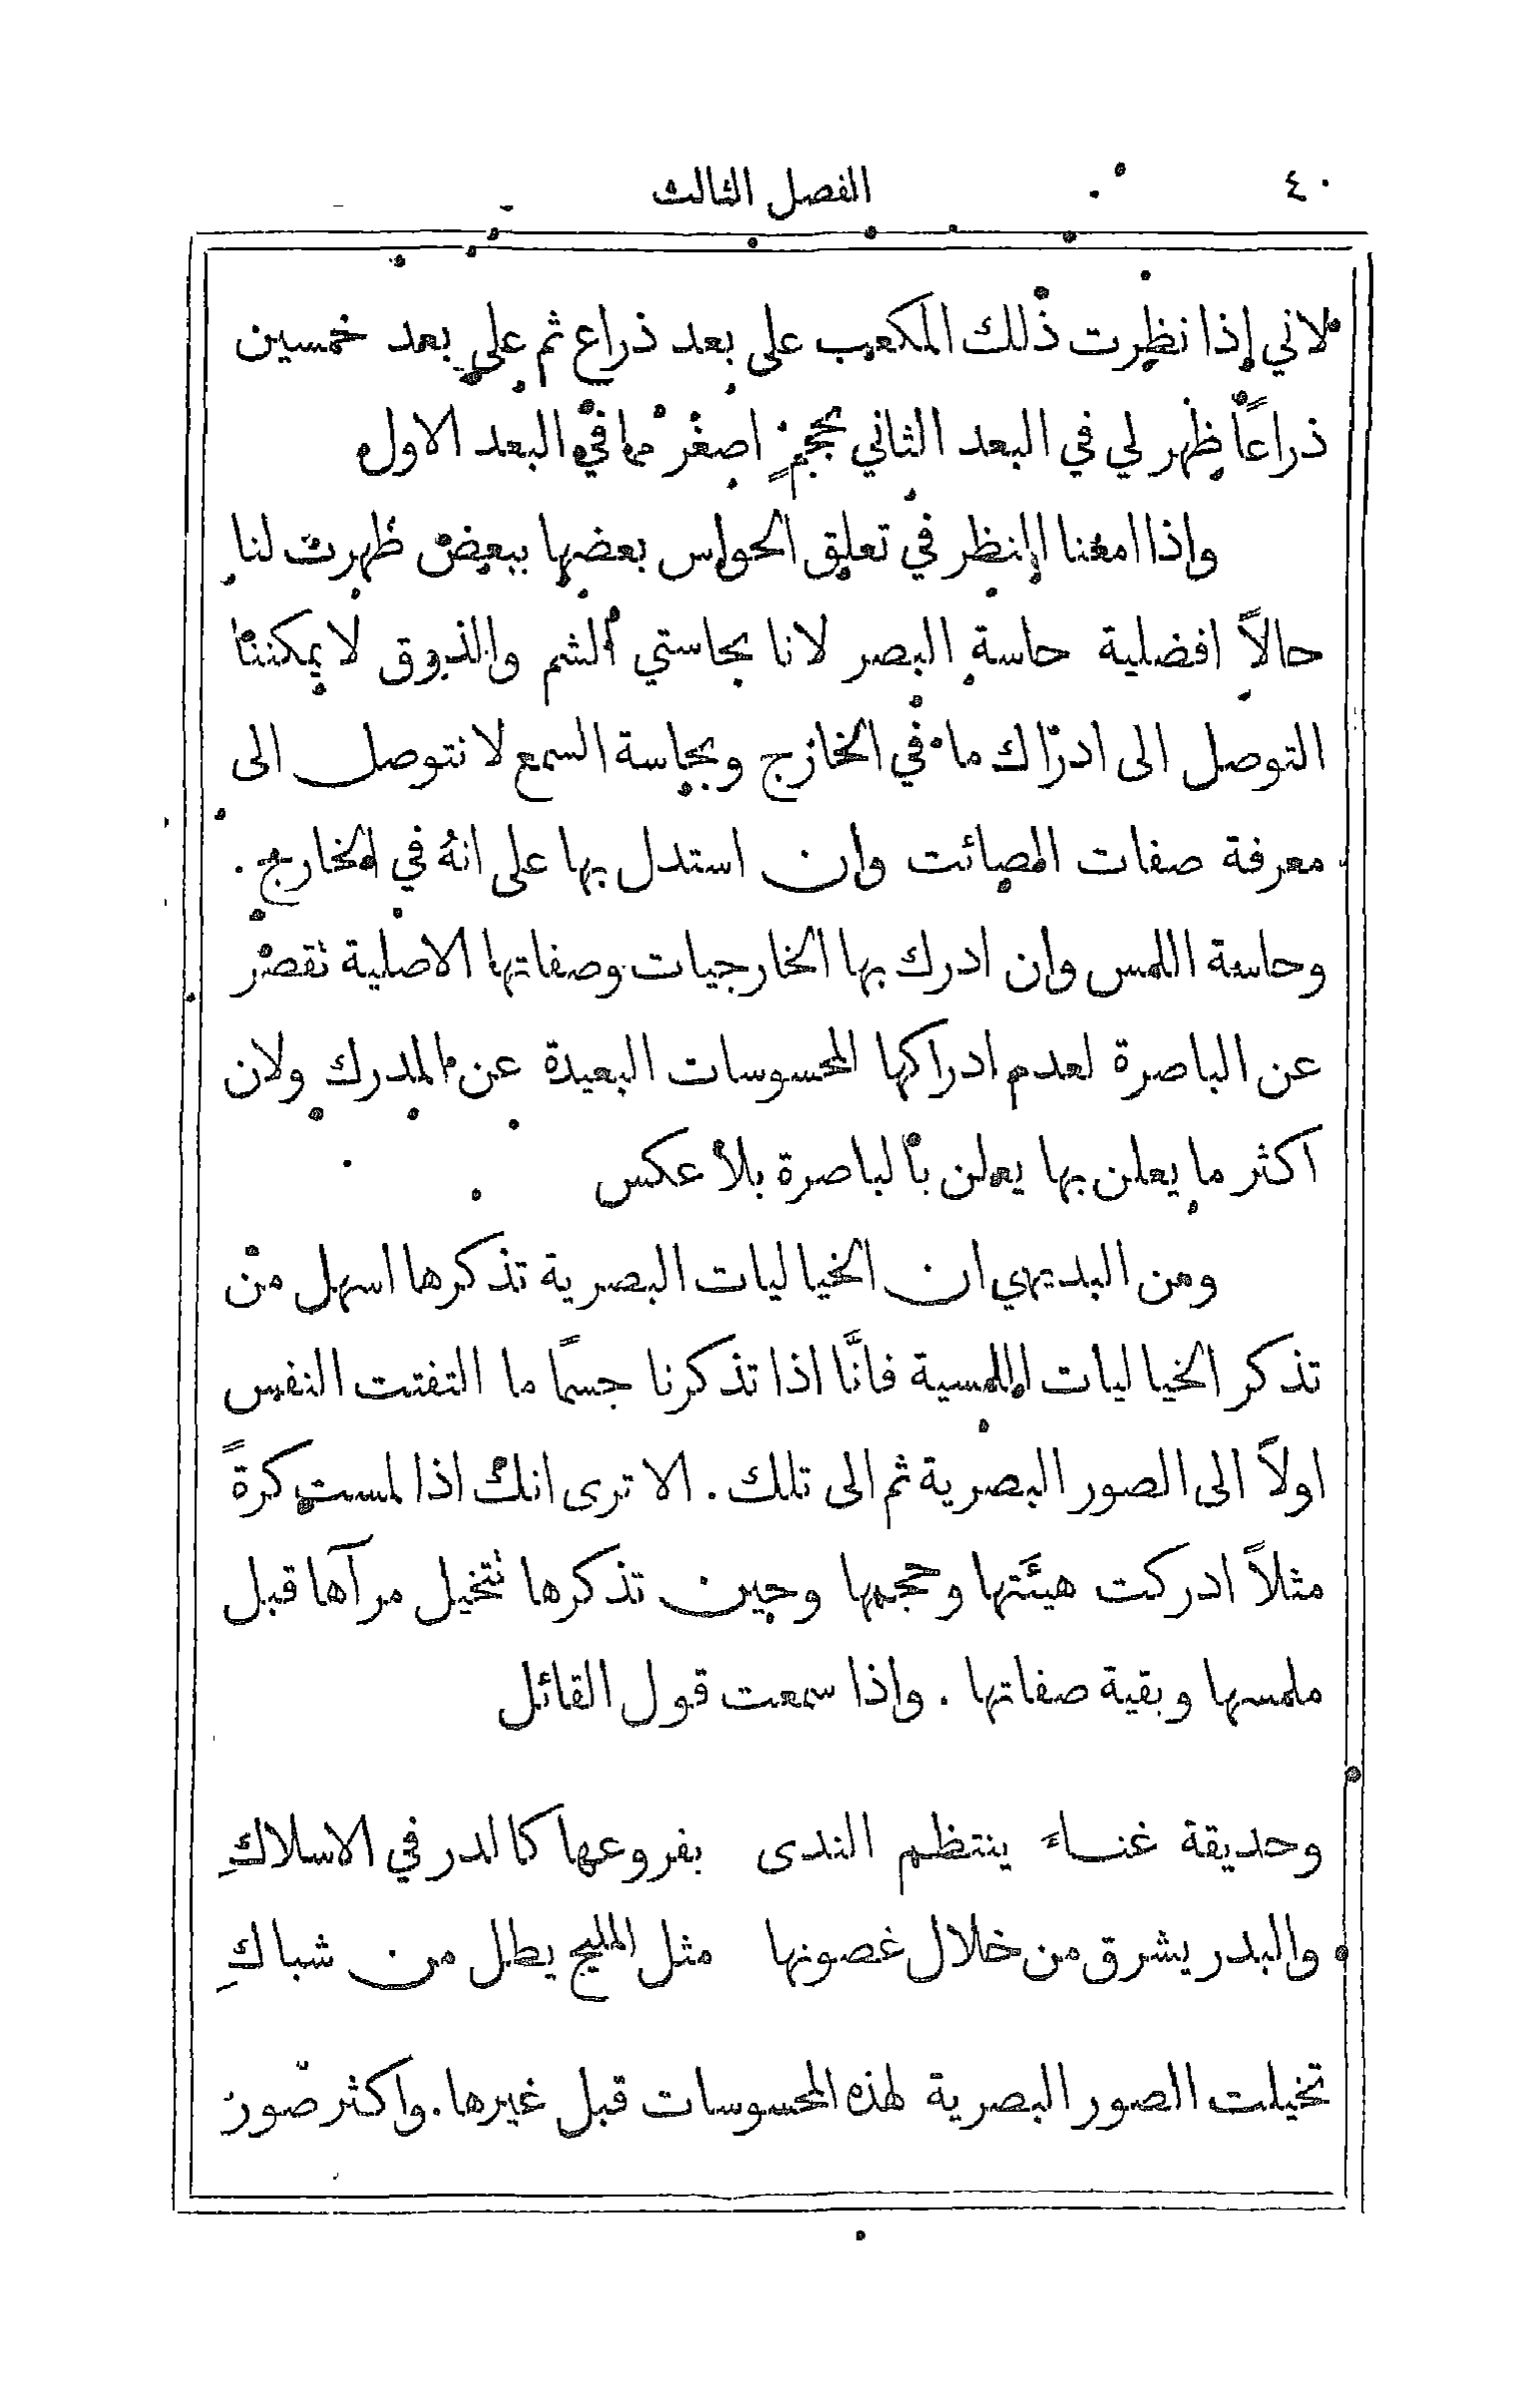 ٤٠ الفصل الثالث
لاني إذا نظرت ذلك المكعب على بعد ذراع ثم على بعد خمسين
ذراعًا ظهر لي في البعد الثاني بحجمٍ اصغر مما في البعد الاول
واذا امعنا النظر في تعليق الحواس بعضها ببعض ظهرت لنا
حالاً افضلية حاسة البصر لانا بحاستي الشم والذوق لا يمكننا
التوصل الى ادراك ما في الخارج وبحاسة السمع لا نتوصل الى
معرفة صفات المصائت وان استدل بها على انهُ في الخارج .
وحاسة اللمس وان ادرك بها الخارجيات وصفاتها الاصلية تقصر
عن الباصرة لعدم ادراكها المحسوسات البعيدة عن المدرك ولان
اكثر ما يعلن بها يعلن بالباصرة بلا عكس
ومن البديهي ان الخياليات البصرية تذكرها اسهل من
تذكر الخياليات اللمسية فانَّا اذا تذكرنا جسمًا ما التفتت النفس
اولاً الى الصور البصرية ثم الى تلك . الا ترى انك اذا لمست كرةً
مثلاً ادركت هيئَتها وحجمها وحين تذكرها تتخيل مرآها قبل
ملمسها وبقية صفاتها . واذا سمعت قول القائل
وحديقة غنـاءَ ينتظم الندى بفروعها كالدر في الاسلاكِ
والبدر يشرق من خلال غصونها مثل المليح يطل من شباكِ
تخيلت الصور البصرية لهذه المحسوسات قبل غيرها . واكثر صور